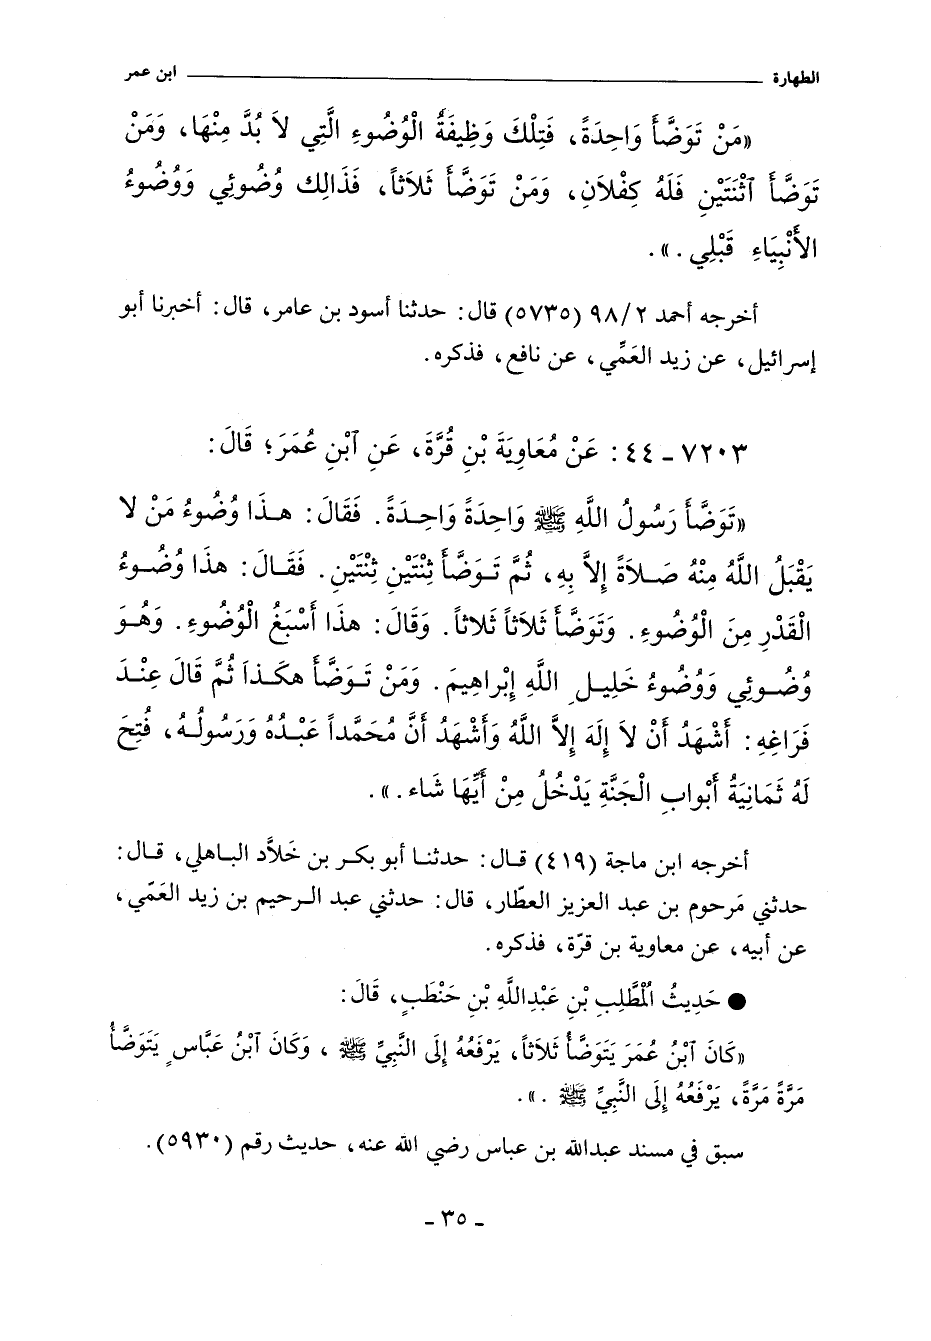 الطهارة ابن عمر
«مَنْ تَوَضَّأَ وَاحِدَةً، فَتِلْكَ وَظِيفَةُ الْوُضُوءِ الَّتِي لاَ بُدَّ مِنْهَا، وَمَنْ
تَوَضَّأَ آثْنَتَيْنِ فَلَهُ كِفْلاَنِ، وَمَنْ تَوَضَّأَ ثَلاَثاً، فَذَالِكَ وُضُوئِي وَوُضُوءُ
الأَنْبِيَاءِ قَبْلِي.».
أخرجه أحمد ٩٨/٢ (٥٧٣٥) قال: حدثنا أسود بن عامر، قال: أخبرنا أبو
إسرائيل، عن زيد العَمِّي، عن نافع، فذكره.
٧٢٠٣ - ٤٤: عَنْ مُعَاوِيَةَ بْنِ قُرَّةَ، عَنِ ٱبْنِ عُمَرَ؛ قَالَ:
«تَوَضَّأَ رَسُولُ اللَّهِ ﷺ وَاحِدَةً وَاحِدَةً. فَقَالَ: هـذَا وُضُوءُ مَنْ لا
يَقْبَلُ اللَّهُ مِنْهُ صَلاَةً إِلاَّ بِهِ، ثُمَّ تَوَضَّأَ ثِنْتَيْنِ ثِنْتَيْنِ. فَقَالَ: هذَا وُضُوءُ
الْقَدْرِ مِنَ الْوُضُوءِ. وَتَوَضَّأَ ثَلاَثاً ثَلاثاً. وَقَالَ: هذَا أَسْبَغُ الْوُضُوءِ. وَهُوَ
وُضُوئِي وَوُضُوءُ خَلِيلِ اللَّهِ إِبْرَاهِيمَ. وَمَنْ تَوَضَّأَ هكَذَا ثُمَّ قَالَ عِنْدَ
فَرَاغِهِ: أَشْهَدُ أَنْ لاَ إِلَهَ إِلاَّ اللَّهُ وَأَشْهَدُ أَنَّ مُحَمَّداً عَبْدُهُ وَرَسُولُهُ، فُتِحَ
لَهُ ثَمَانِيَةُ أَبْوابِ الْجَنَّةِ يَدْخُلُ مِنْ أَيِّهَا شَاء.».
أخرجه ابن ماجة (٤١٩) قال: حدثنا أبو بكر بن خَلاَّد الباهلي، قال:
حدثني مَرحوم بن عبد العزيز العطّار، قال: حدثني عبد الرحيم بن زيد العَمّي،
عن أبيه، عن معاوية بن قرّة، فذكره.
● حَدِيثُ الْمُطَّلِبِ بْنِ عَبْدِاللَّهِ بْنِ حَنْطَبٍ، قَالَ:
«كَانَ ٱبْنُ عُمَرَ يَتَوَضَّأُ ثَلاَثاً، يَرْفَعُهُ إِلَى النَّبِيِّ ﷺ، وَكَانَ ٱبْنُ عَبَّاسٍ يَتَوَضَّأُ
مَرَّةً مَرَّةً، يَرْفَعُهُ إِلَى النَّبِيِّ ﷺ.».
سبق في مسند عبدالله بن عباس رضي الله عنه، حديث رقم (٥٩٣٠).
- ٣٥ -